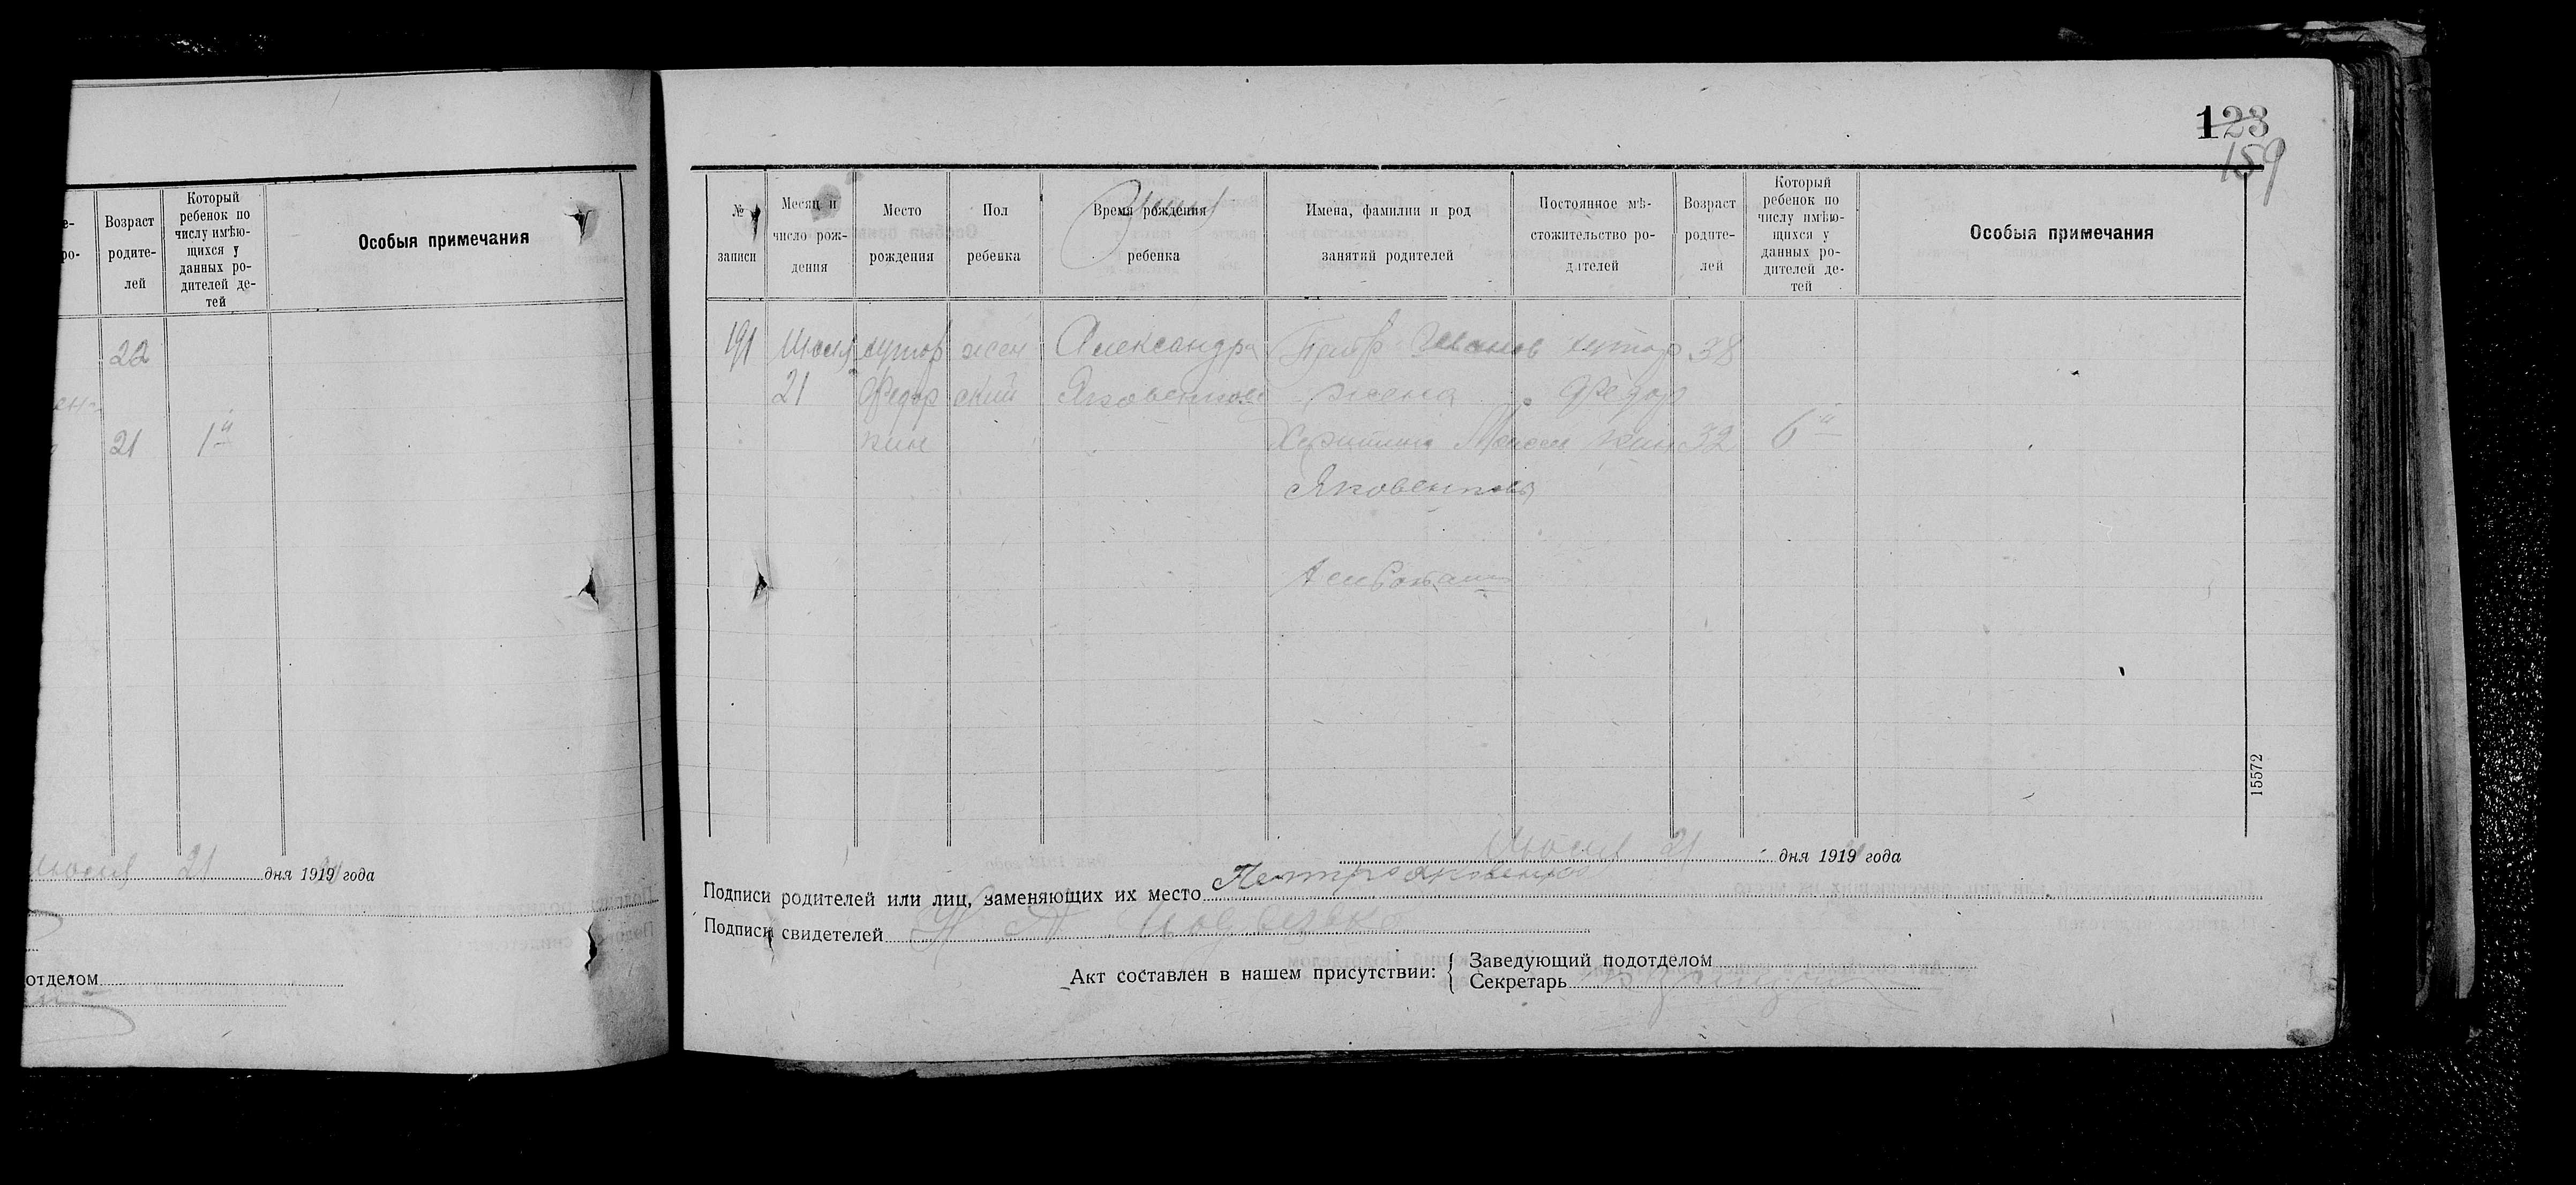 Возраст
родите-
лей
Который
ребенок по
числу имѣю-
щихся у
данных ро-
дителей де-
тей
Особыя примечания
22
21 1й
Июля 21 дня 1919 года
отделом
123
159
№
записи
Месяц и
число рож-
дения
Место
рождения
Пол
ребенка
Время рождения
ребенка
Имена, фамилии и род
занятий родителей
Постоянное мѣ-
стожительство ро-
дителей
Возраст
родите-
лей
Который
ребенок по
числу имѣю-
щихся у
данных ро-
дителей де-
тей
Особыя примечания
191 Июля хутор жен Александра Петр Иванов хутор 38
21 Федор ский Яковенкова жена Федор
кин кин 32 6й
Яковенковы
15572
Июля 21 дня 1919 года
Подписи родителей или лиц, заменяющих их место Петр Яковенков
Подписи свидетелей
Акт составлен в нашем присутствии: { Заведующий подотделом
Секретарь